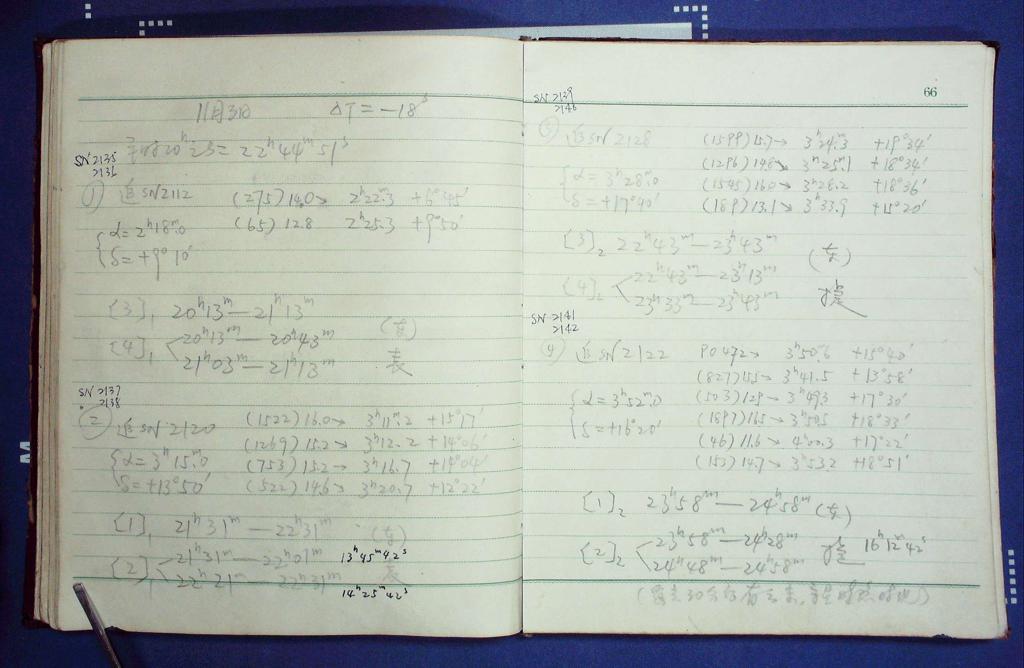 11月3日 ΔT = -18ˢ
20ʰ 25 = 22ʰ44ᵐ51ˢ
SN 2135
2136
① 追SN2112 (275) 14.0→ 2ʰ22ᵐ.3 +6°45′
(65) 12.8 2ʰ25.3 +9°50′
{ α = 2ʰ18ᵐ.0
δ = +9°10′
[3]₁ 20ʰ13ᵐ — 21ʰ13ᵐ
[4]₁ < 20ʰ13ᵐ — 20ʰ43ᵐ (东)
21ʰ03ᵐ — 21ʰ13ᵐ 表
SN 2137
2138
② 追SN2120 (1522) 16.0→ 3ʰ11ᵐ.2 +15°17′
(1269) 15.2→ 3ʰ12.2 +14°06′
{ α = 3ʰ15ᵐ.0 (753) 15.2→ 3ʰ16.7 +14°04′
δ = +13°50′ (522) 14.6→ 3ʰ20.7 +12°22′
[1]₁ 21ʰ31ᵐ — 22ʰ31ᵐ (东)
[2]₁ < 21ʰ31ᵐ — 22ʰ01ᵐ 13ʰ45ᵐ42ˢ
22ʰ21ᵐ — 22ʰ31ᵐ 表
14ʰ25ᵐ42ˢ
66
SN 2139
2140
③ 追SN2128 (1599) 15.7→ 3ʰ24ᵐ.3 +19°34′
(1296) 14.8→ 3ʰ25ᵐ.1 +18°34′
{ α = 3ʰ28ᵐ.0 (1545) 16.0→ 3ʰ28.2 +18°36′
δ = +17°40′ (189) 13.1→ 3ʰ33.9 +15°20′
[3]₂ 22ʰ43ᵐ — 23ʰ43ᵐ (东)
[4]₂ < 22ʰ43ᵐ — 23ʰ13ᵐ
23ʰ33ᵐ — 23ʰ43ᵐ
SN 2141
2142
④ 追SN2122 PO 472→ 3ʰ50ᵐ.6 +15°40′
(827) 15.5→ 3ʰ41.5 +13°58′
{ α = 3ʰ52ᵐ.0 (503) 12.9→ 3ʰ49.3 +17°30′
δ = +16°20′ (1897) 16.5→ 3ʰ50.5 +18°33′
(46) 11.6→ 4ʰ00.3 +17°22′
(153) 14.7→ 3ʰ53.2 +18°51′
[1]₂ 23ʰ58ᵐ — 24ʰ58ᵐ (东)
[2]₂ < 23ʰ58ᵐ — 24ʰ28ᵐ 16ʰ12ᵐ42ˢ
24ʰ48ᵐ — 24ʰ58ᵐ
30分